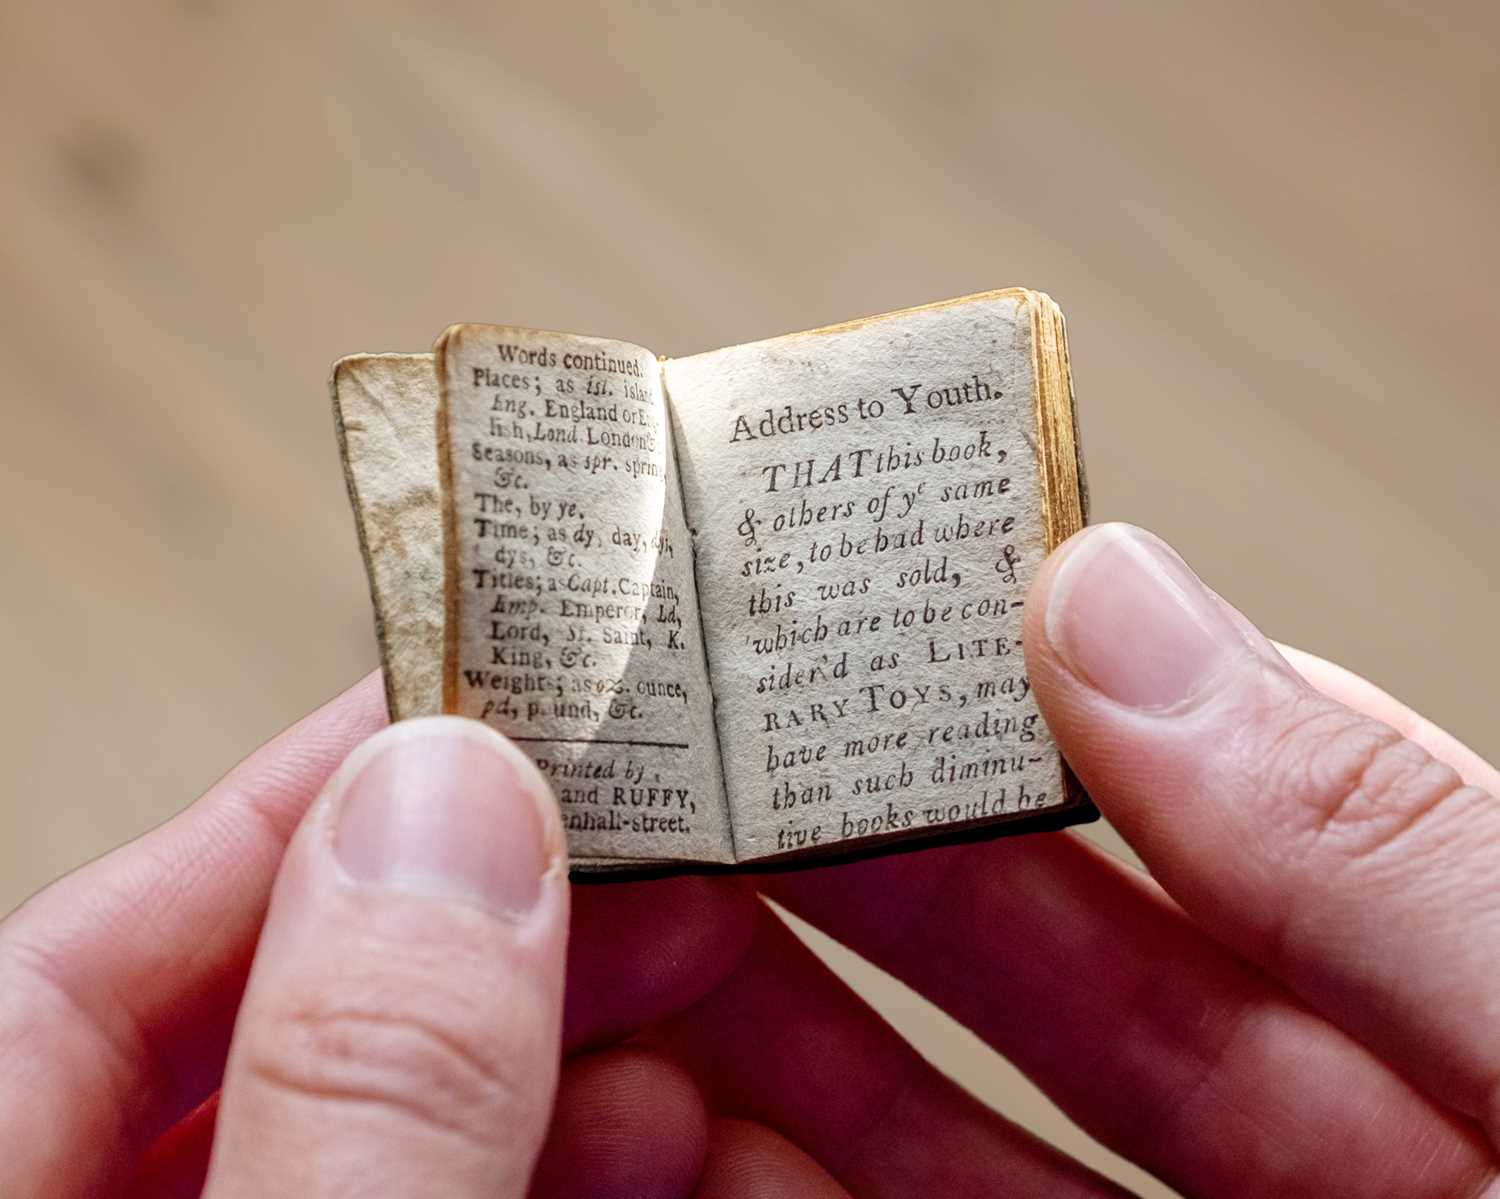 Words continued.
Places; as isl. island
Eng. England or Eng
lish, Lond. London &c.
Seasons, as spr. spring,
&c.
The, by ye.
Time; as dy, day, dyi,
dys, &c.
Titles; as Capt. Captain,
Emp. Emperor, Ld,
Lord, St. Saint, K.
King, &c.
Weights; as oz. ounce,
pd, pound, &c.
Printed by
and RUFFY,
enhall-street.
Address to Youth.
THAT this book,
& others of yᵉ same
size, to be had where
this was sold, &
which are to be con-
sider'd as LITE-
RARY TOYS, may
have more reading
than such diminu-
tive books would be